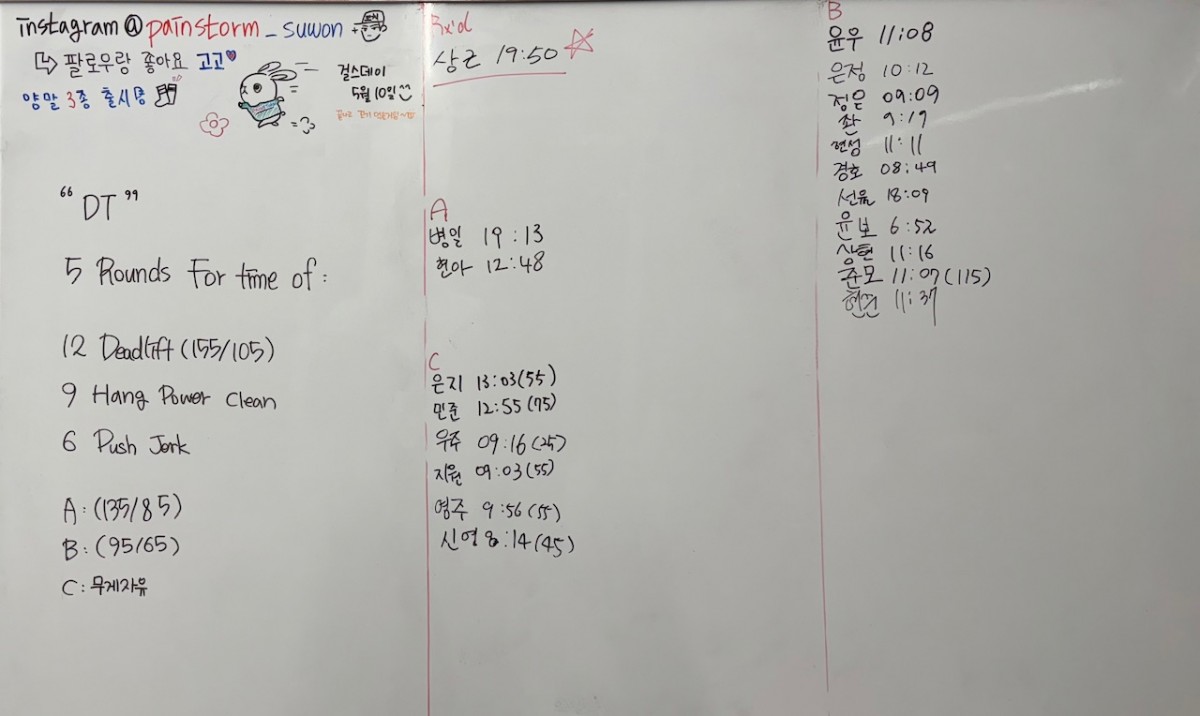 instagram @ painstorm _ suwon
팔로우랑 좋아요 고고
양말 3종 출시중
걸스데이
5월 10일
"DT"
5 Rounds For time of :
12 Deadlift (155/105)
9 Hang Power Clean
6 Push Jerk
A : (135/85)
B : (95/65)
C : 무게자유
Rx'd
상근 19:50
A
병일 19:13
현아 12:48
C
은지 13:03(55)
민준 12:55(75)
우주 09:16(25)
지원 09:03(55)
영주 9:56(55)
신영 8:14(45)
B
윤우 11:08
은정 10:12
정은 09:09
9:19
현성 11:11
경호 08:49
선율 18:09
윤보 6:52
상현 11:16
준모 11:07(115)
11:37